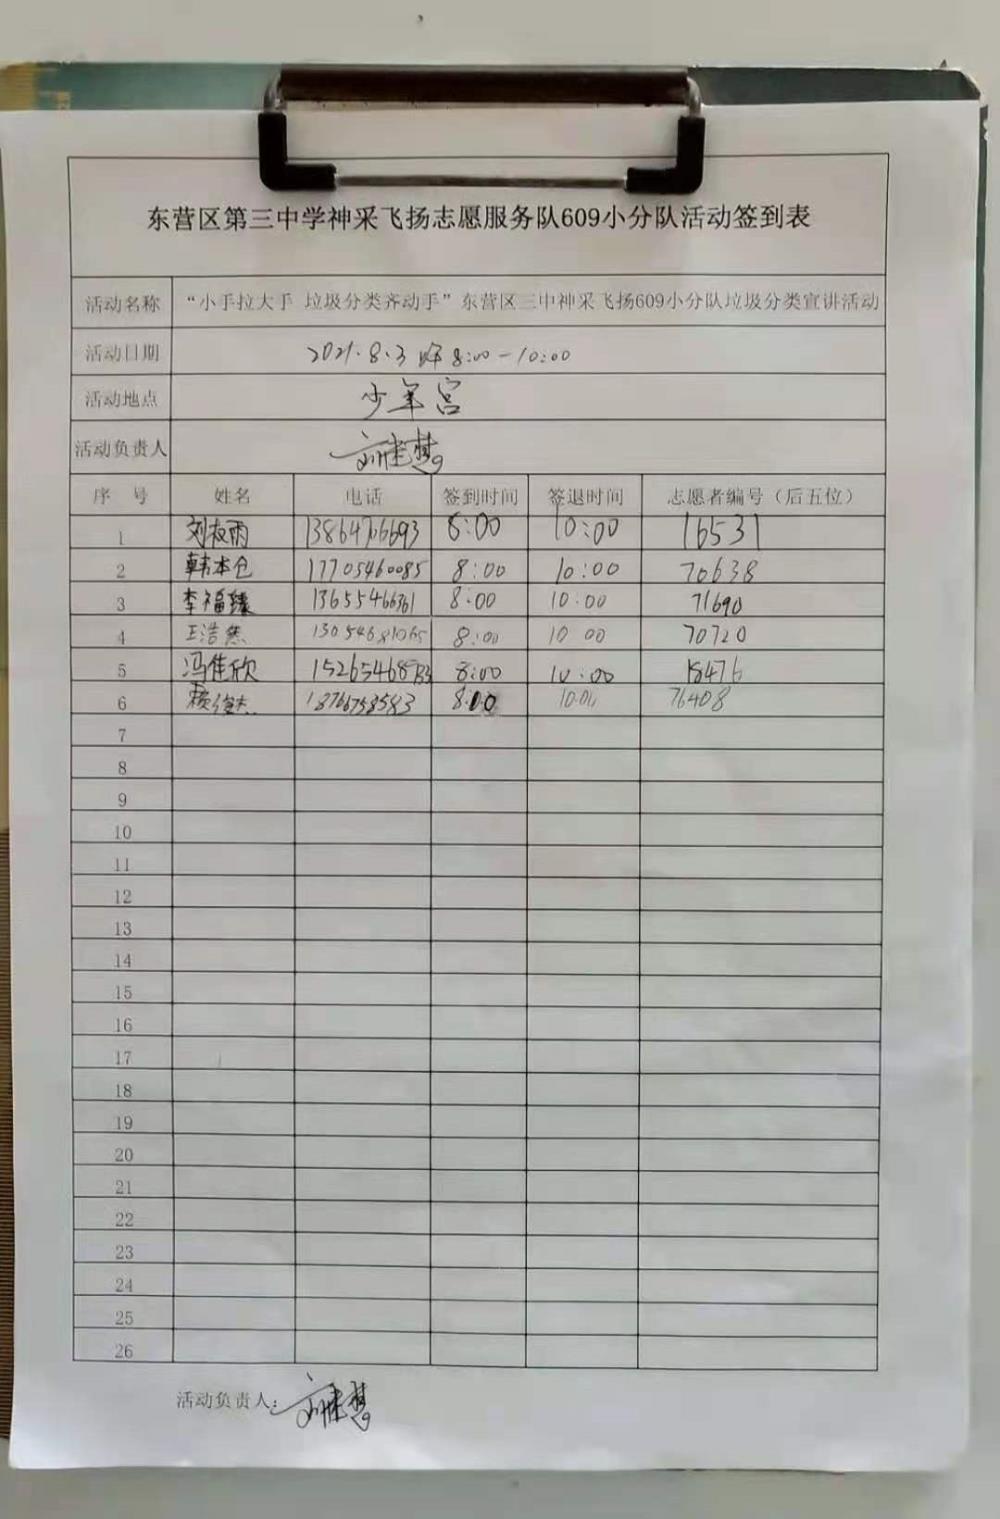 东营区第三中学神采飞扬志愿服务队609小分队活动签到表
活动名称 “小手拉大手 垃圾分类齐动手”东营区三中神采飞扬609小分队垃圾分类宣讲活动
活动日期 2021.8.3 8:00-10:00
活动地点 少年宫
活动负责人
序 号 姓名 电话 签到时间 签退时间 志愿者编号（后五位）
1 8:00 10:00 16531
2 韩本仓 17705460085 8:00 10:00 70638
3 李福臻 13655466361 8:00 10:00 71690
4 王浩然 13054681065 8:00 10 00 70720
5 冯佳欣 8:00 10:00 18476
6 18766758583 8:00 10:00 76408
7
8
9
10
11
12
13
14
15
16
17
18
19
20
21
22
23
24
25
26
活动负责人：